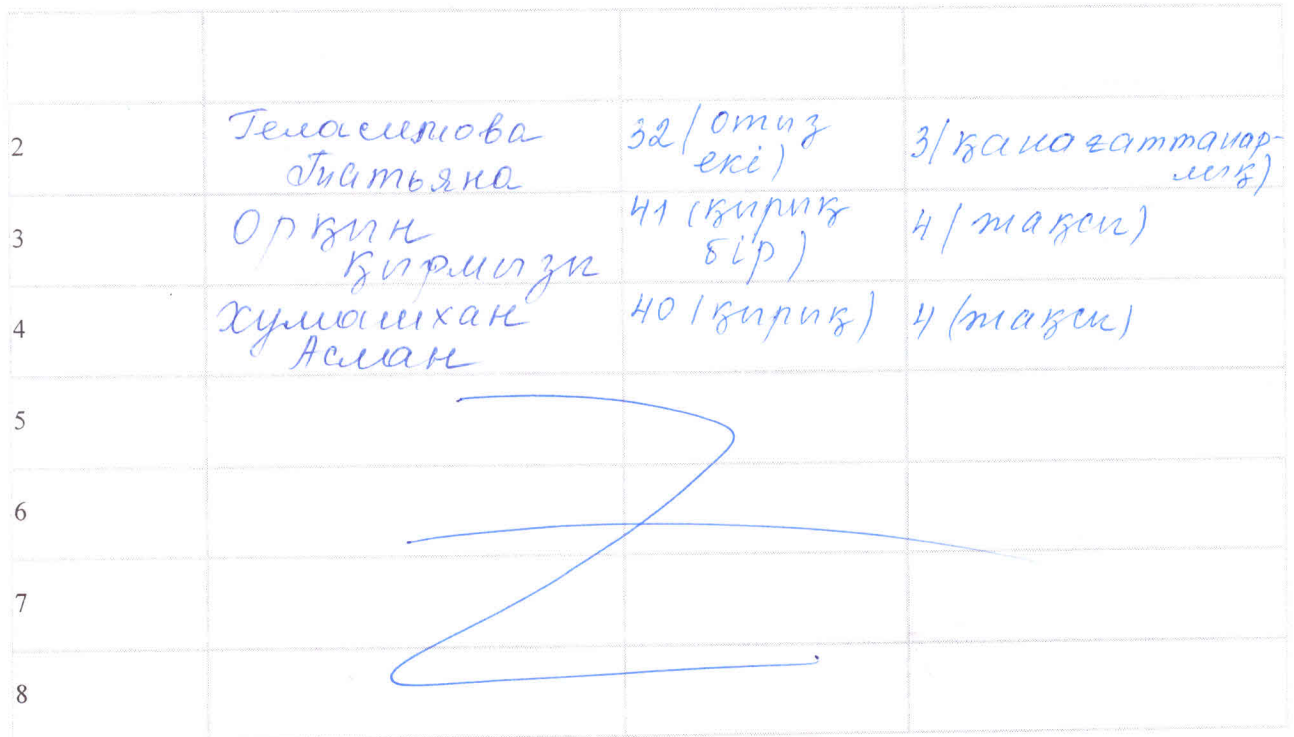 2
Геласимова
Татьяна
32 (отыз
екі)
3 (қанағаттанар-
лық)
3
Орқын
Қырмызы
41 (қырық
бір)
4 (жақсы)
4
Хумашхан
Аслан
40 (қырық)
4 (жақсы)
5
6
7
8